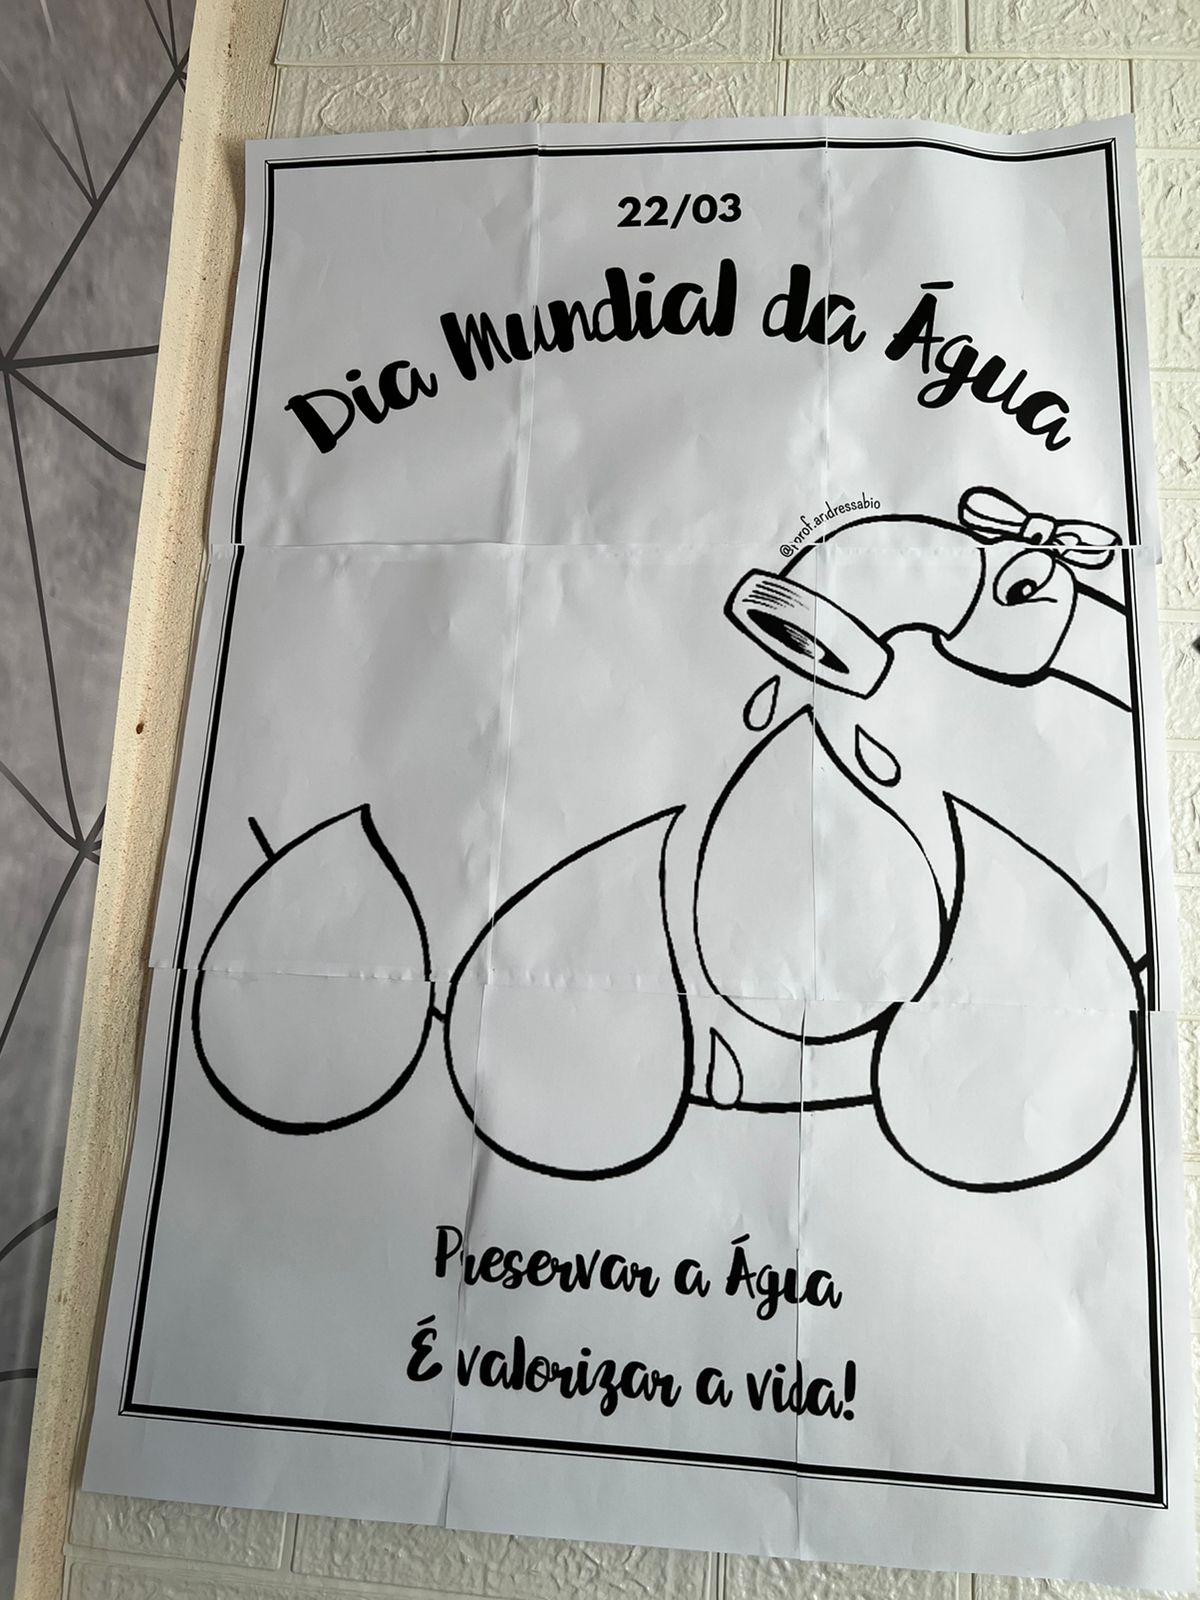 22/03
Dia Mundial da Água
@prof.andressabio
Preservar a Água
É valorizar a vida!